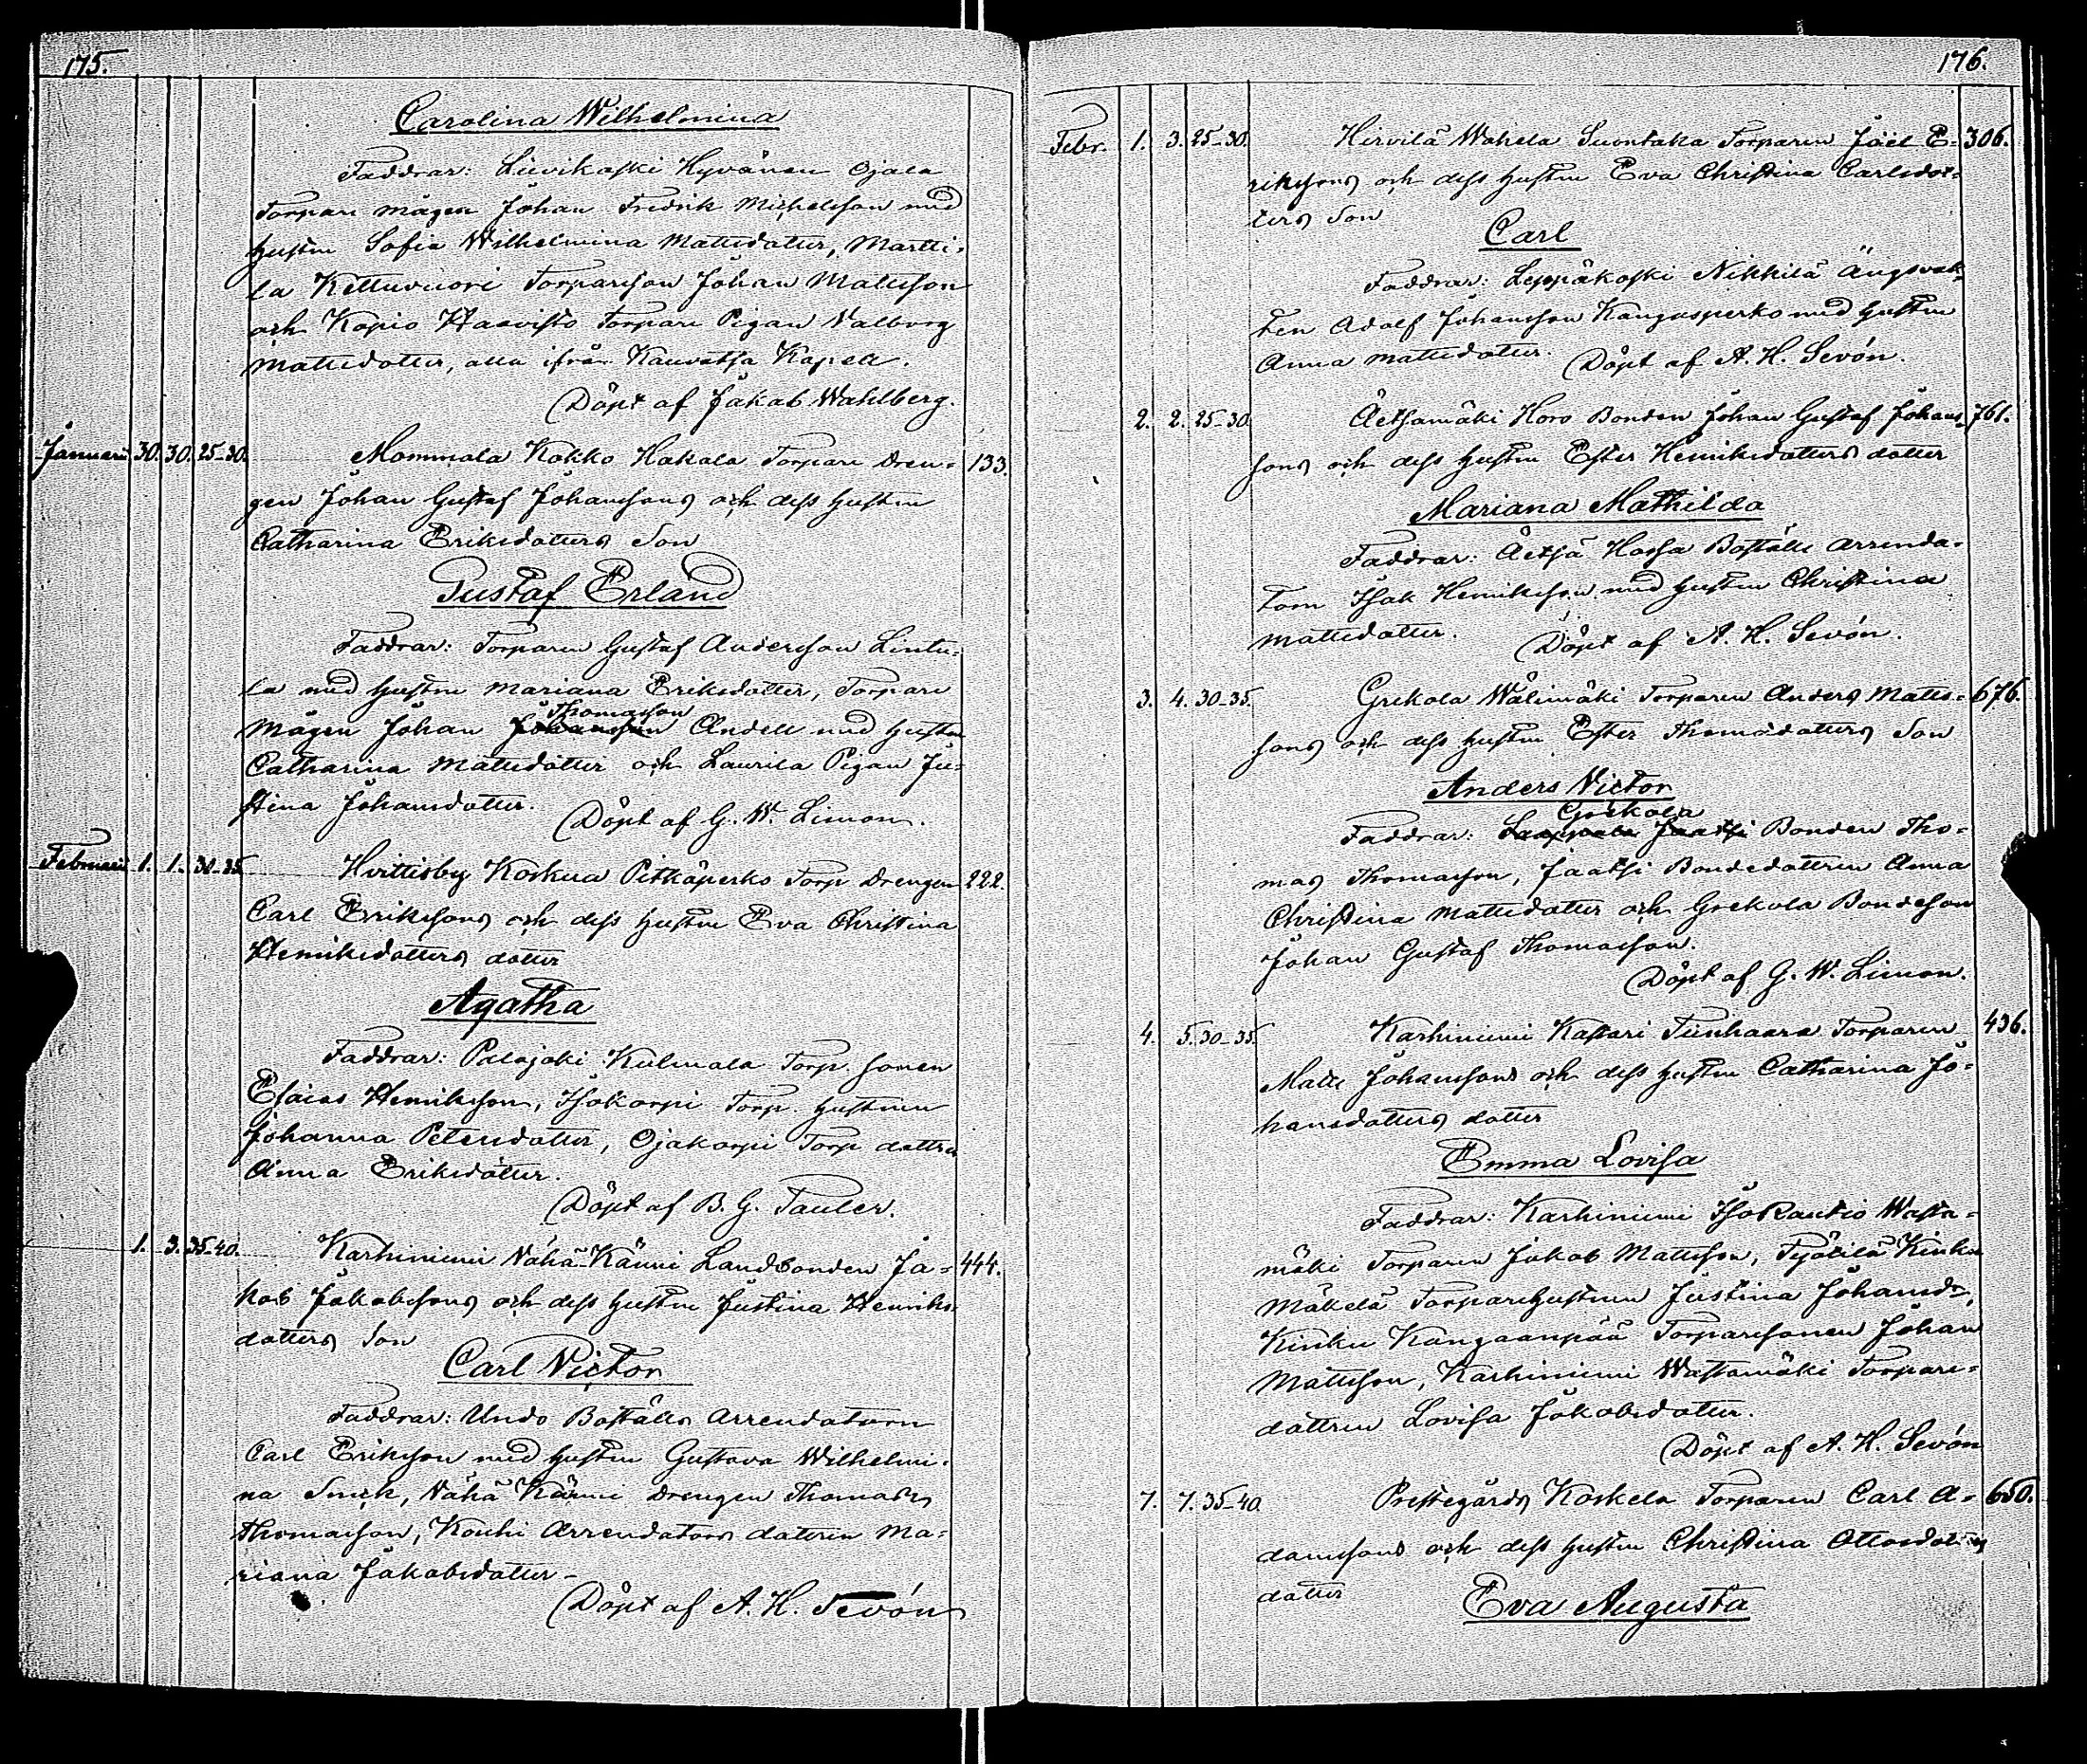 175.
Carolina Wilhelmina
Faddrar: Liivikoski Hyvänen Ojala
Torpare mågen Johan Fredrik Michelsson med
hustru Sofia Wilhelmina Mattsdotter, Martti-
la Kettuvuori Torparesson Johan Mattsson
och Kopio Haavisto Torpare Pigan Valborg
Mattsdotter, alla ifrån Kauvatsa Kapell.
Döpt af Jakob Wahlberg.
Januari 30. 30. 25-30. Mommola Kokko Hakala Torpare Dren- 133.
gen Johan Gustaf Johanssons och dess hustru
Catharina Eriksdotters Son
Gustaf Erland
Faddrar: Torparen Gustaf Andersson Lintu-
la med hustru Mariana Eriksdotter, Torpare
Thomasson
Mågen Johan Johansson Andell med hustru
Catharina Mattsdotter och Laurila Pigan Ju-
stina Johansdotter.
Döpt af G. W. Limon.
Februari 1. 1. 30-35. Hvittisby Koskua Pitkäperko Torp Drengen 222.
Carl Erikssons och dess hustru Eva Christina
Henriksdotters dotter
Agatha
Faddrar: Palojoki Kulmala Torp. sonen
Esaias Henriksson, Isokorpi Torp. hustrun
Johanna Petersdotter, Ojakorpi Torp dottren
Anna Eriksdotter.
Döpt af B. G. Tauler.
1. 3. 35-40. Karhiniemi Nähä-Känni Landbonden Ja- 444.
kob Jakobssons och dess hustru Justina Henriks-
dotters Son
Carl Victor
Faddrar: Undo Boställs Arrendatorn
Carl Eriksson med hustru Gustava Wilhelmi-
na Smek, Nähä Känni Drengen Thomas
Thomasson, Kouhi Arrendators dottren Ma-
riana Jakobsdotter-
Döpt af A. H. Sevón
176.
Febr. 1. 3. 25-30. Hirvilä Wahela Suontaka Torparen Joel E- 306.
rikssons och dess hustru Eva Christina Carlsdot-
ters Son
Carl
Faddrar: Leppäkoski Nikkilä Ängsvak-
ten Adolf Johansson Kangasperko med hustru
Anna Mattsdotter. Döpt af A. H. Sevón.
2. 2. 25-30. Äetsämäki Horo Bonden Johan Gustaf Johans- 761.
sons och dess hustru Ester Henriksdotters dotter
Mariana Mathilda
Faddrar: Äetsä Hossa Boställs Arrenda-
torn Isak Henriksson med hustru Christina
Mattsdotter. Döpt af A. H. Sevón.
3. 4. 30-35. Grekola Wälimäki Torparen Anders Matts- 676.
sons och dess hustru Ester Thomasdotters Son
Anders Victor
Grekola
Faddrar: Jaatsi Bonden Tho-
mas Thomasson, Jaatsi Bondedottren Anna
Christina Mattsdotter och Grekola Bondeson
Johan Gustaf Thomasson.
Döpt af G. W. Limon.
4. 5. 30-35. Karhiniemi Kassari Tiinhaara Torparen 436.
Matts Johanssons och dess hustru Catharina Jo-
hansdotters dotter
Emma Lovisa
Faddrar: Karhiniemi IsoRautio Wasta-
mäki Torparen Jakob Mattsson, Työtilä Kinku
Mäkelä Torparehustrun Justina Johansdr,
Kinku Kangaanpää Torparesonen Johan
Mattsson, Karhiniemi Wastamäki Torpare-
dottren Lovisa Jakobsdotter.
Döpt af A. H. Sevón
7. 7. 35-40. Prestegårds Koskela Torparen Carl A- 650.
damssons och dess hustru Christina Ottosdotters
dotter Eva Augusta